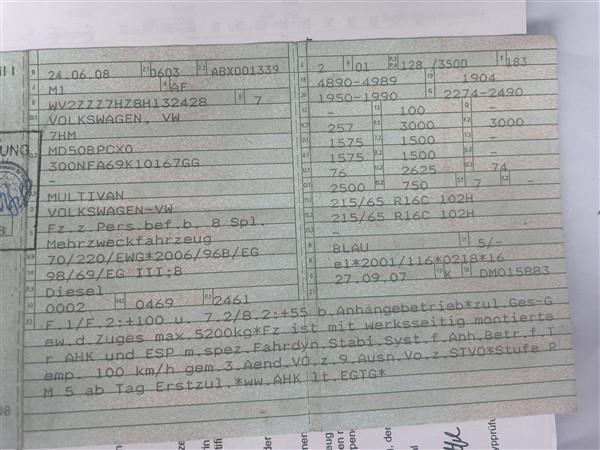 B 24.06.08 2.1 0603 2.2 ABX001339
J M1 4 AF
E WV2ZZZ7HZ8H132428 3 7
D.1 VOLKSWAGEN, VW
7HM
D.2 MD508PCX0
300NFA69K10167GG
-
MULTIVAN
VOLKSWAGEN-VW
Fz.z.Pers.bef.b. 8 Spl.
Mehrzweckfahrzeug
70/220/EWG*2006/96B/EG
98/69/EG III;B
Diesel
0002 0469 2461
L 2 9 01 P.2 P.4 128 /3500 T 183
18 4890-4989 19 1904
20 1950-1990 G 2274-2490
12 - 13 100 Q -
V.7 257 F.1 3000 F.2 3000
7.1 1575 7.2 1500 7.3 -
8.1 1575 8.2 1500 8.3 -
U.1 76 U.2 2625 U.3 74
O.1 2500 O.2 750 S.1 7 S.2 -
15.1 215/65 R16C 102H
15.2 215/65 R16C 102H
15.3 -
R BLAU 11 5/-
K e1*2001/116*0218*16
6 27.09.07 17 K 16 DM015883
22 F.1/F.2:+100 u. 7.2/8.2:+55 b.Anhängebetrieb*zul.Ges-G
ew.d.Zuges max.5200kg*Fz ist mit werksseitig montierte
r AHK und ESP m.spez.Fahrdyn.Stabi.Syst.f.Anh.Betr.f.T
emp. 100 km/h gem.3.Aend.VO.z.9.Ausn.Vo.z.STVO*Stufe P
M 5 ab Tag Erstzul.*ww.AHK lt.EGTG*